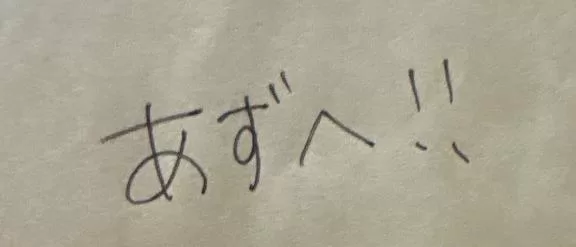 あずへ!!